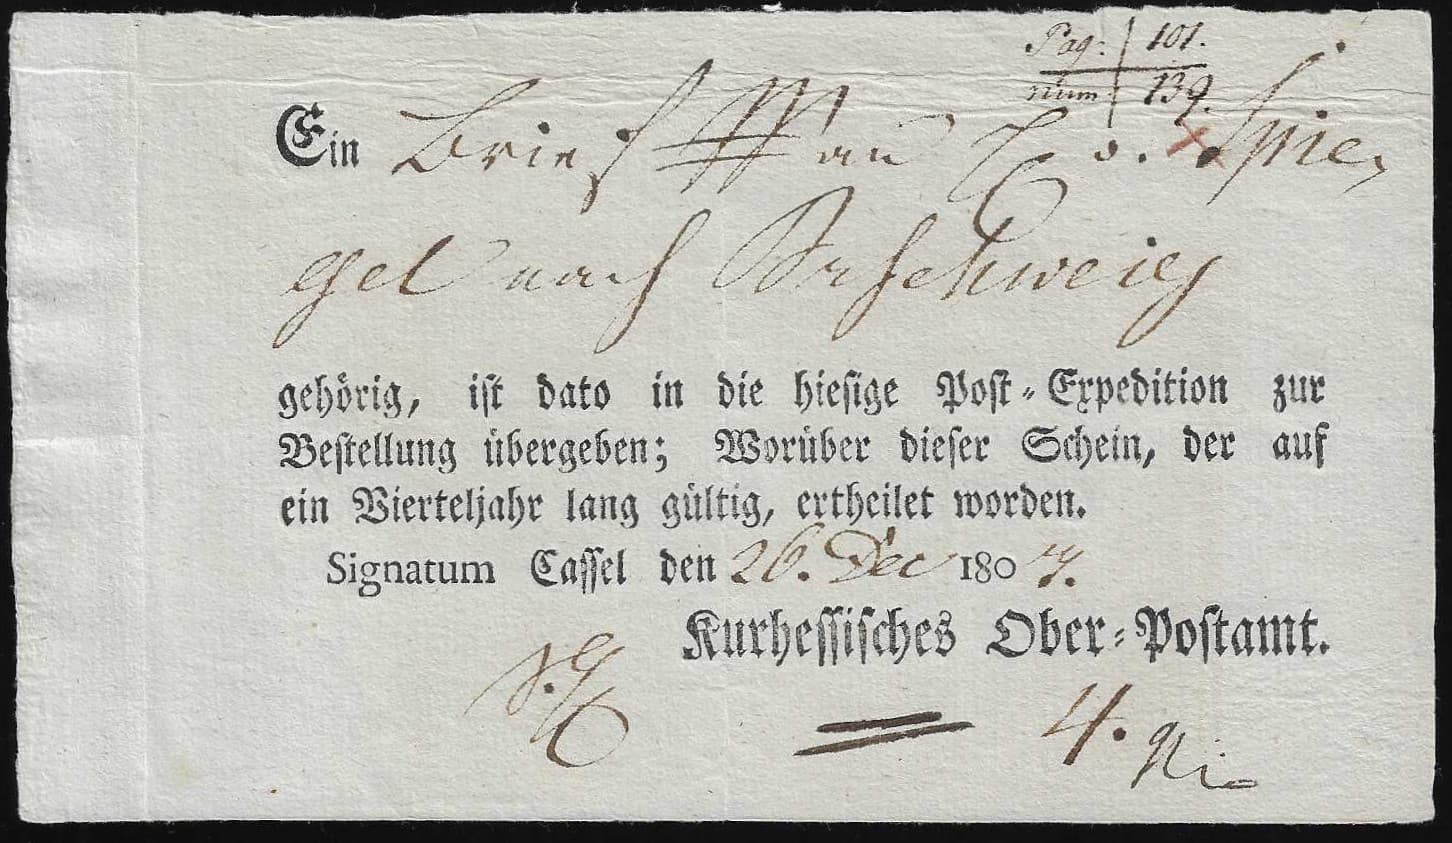 Pag: 101.
num 139.
Ein Brief an v. Spie,
gel nach Brschweig
gehörig, iſt dato in die hieſige Poſt-Expedition zur
Beſtellung übergeben; Worüber dieſer Schein, der auf
ein Vierteljahr lang gültig, ertheilet worden.
Signatum Caſſel den 26. Dec 1807.
Kurheſſiſches Ober-Poſtamt.
4.